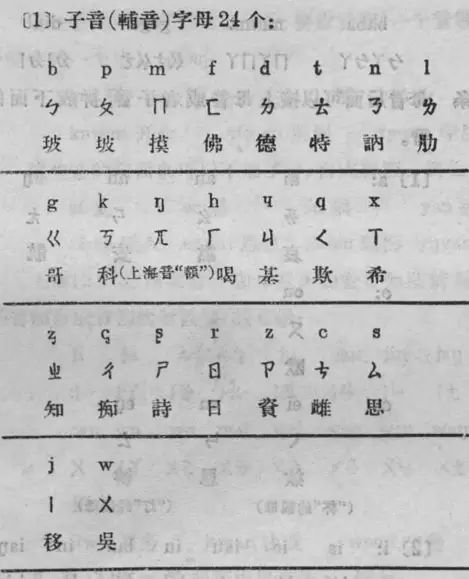 〔1〕子音(輔音)字母24个:
b p m f d t n l
ㄅ ㄆ ㄇ ㄈ ㄉ ㄊ ㄋ ㄌ
玻 坡 摸 佛 德 特 訥 肋
g k ŋ h ч q x
ㄍ ㄎ ㄫ ㄏ ㄐ ㄑ ㄒ
哥 科 (上海音“額”) 喝 基 欺 希
z̧ ç ş r z c s
ㄓ ㄔ ㄕ ㄖ ㄗ ㄘ ㄙ
知 痴 詩 日 資 雌 思
j w
ㄧ ㄨ
移 吳